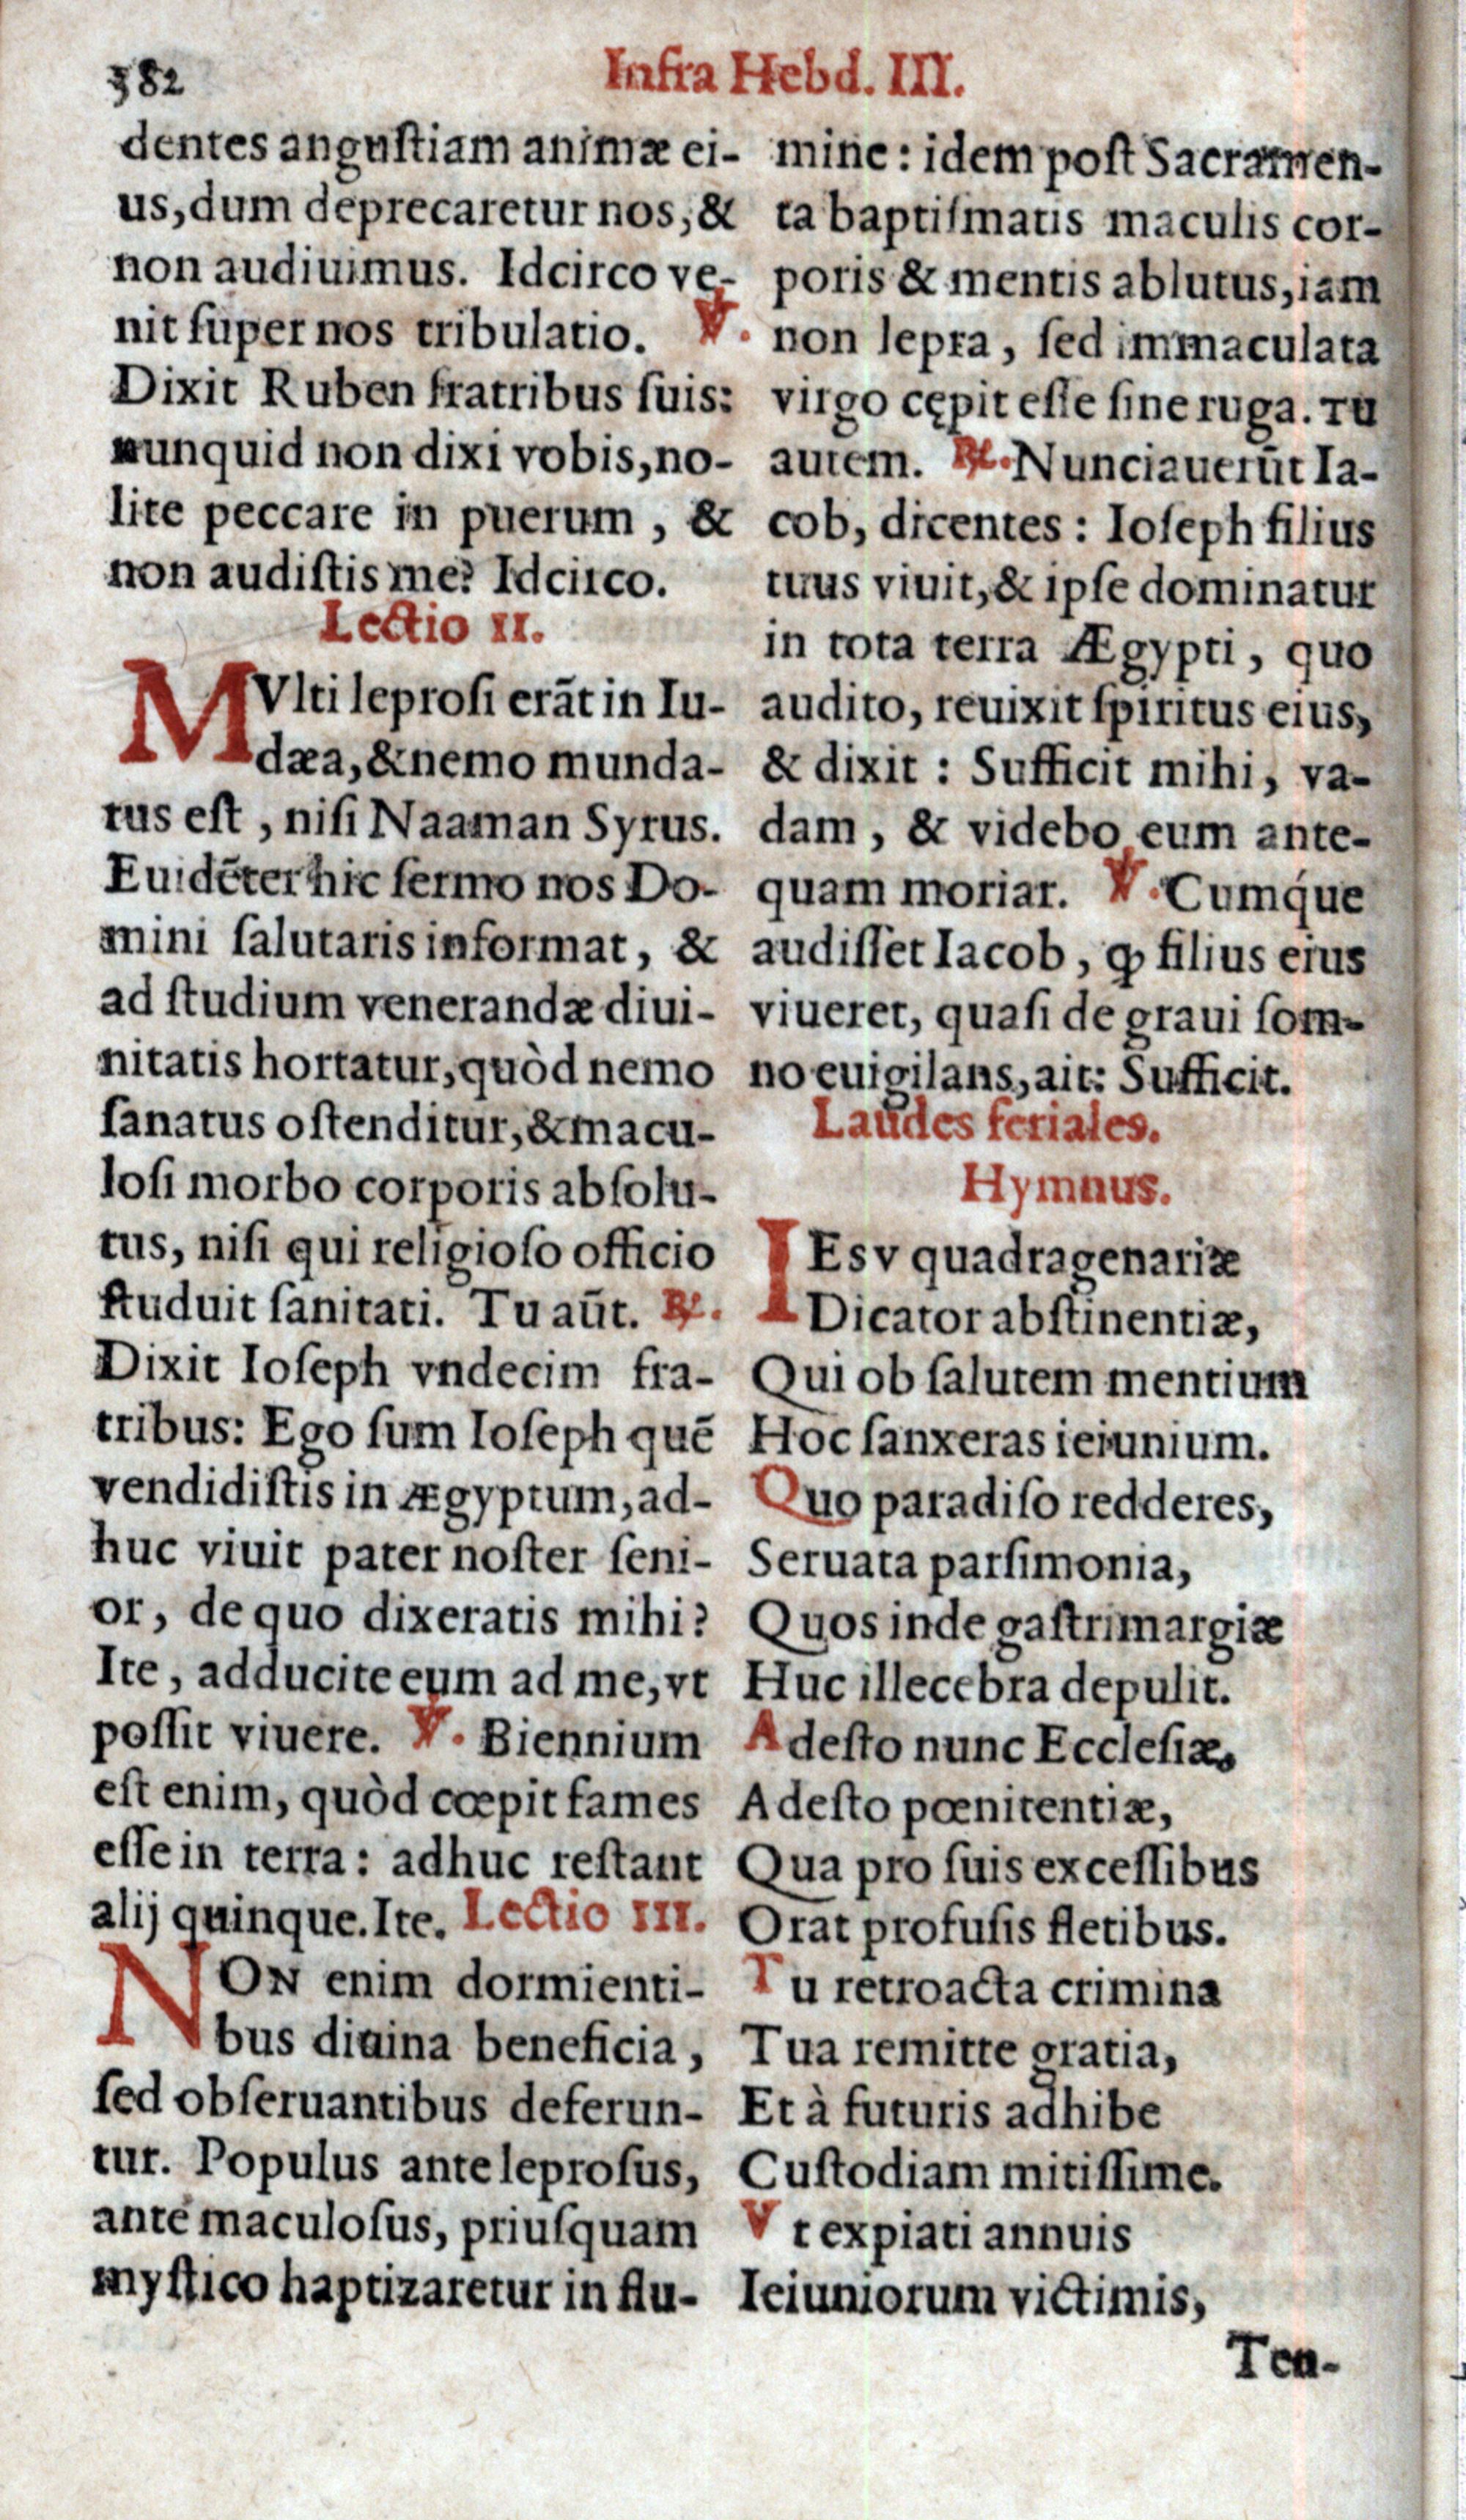 382
Infra Hebd. III.
dentes angustiam animæ ei-
us, dum deprecaretur nos, &
non audiuimus. Idcirco ve-
nit super nos tribulatio. ℣.
Dixit Ruben fratribus suis:
nunquid non dixi vobis, no-
lite peccare in puerum, &
non audistis me? Idcirco.
Lectio II.
MVlti leprosi erãt in Iu-
dæa, & nemo munda-
tus est, nisi Naaman Syrus.
Euidẽter hic sermo nos Do-
mini salutaris informat, &
ad studium venerandæ diui-
nitatis hortatur, quòd nemo
sanatus ostenditur, & macu-
losi morbo corporis absolu-
tus, nisi qui religioso officio
studuit sanitati. Tu aũt. ℟.
Dixit Ioseph vndecim fra-
tribus: Ego sum Ioseph quẽ
vendidistis in ægyptum, ad-
huc viuit pater noster seni-
or, de quo dixeratis mihi?
Ite, adducite eum ad me, vt
possit viuere. ℣. Biennium
est enim, quòd cœpit fames
esse in terra: adhuc restant
alij quinque. Ite. Lectio III.
NON enim dormienti-
bus diuina beneficia,
sed obseruantibus deferun-
tur. Populus ante leprosus,
ante maculosus, priusquam
mystico baptizaretur in flu-
mine: idem post Sacramen-
ta baptismatis maculis cor-
poris & mentis ablutus, iam
non lepra, sed immaculata
virgo cępit esse sine ruga. Tu
autem. ℟. Nunciauerũt Ia-
cob, dicentes: Ioseph filius
tuus viuit, & ipse dominatur
in tota terra Ægypti, quo
audito, reuixit spiritus eius,
& dixit: Sufficit mihi, va-
dam, & videbo eum ante-
quam moriar. ℣. Cumq́ue
audisset Iacob, ꝙ filius eius
viueret, quasi de graui som-
no euigilans, ait: Sufficit.
Laudes feriales.
Hymnus.
IEsv quadragenariæ
Dicator abstinentiæ,
Qui ob salutem mentium
Hoc sanxeras ieiunium.
Quo paradiso redderes,
Seruata parsimonia,
Quos inde gastrimargiæ
Huc illecebra depulit.
Adesto nunc Ecclesiæ,
Adesto pœnitentiæ,
Qua pro suis excessibus
Orat profusis fletibus.
Tu retroacta crimina
Tua remitte gratia,
Et à futuris adhibe
Custodiam mitissime.
Vt expiati annuis
Ieiuniorum victimis,
Ten-